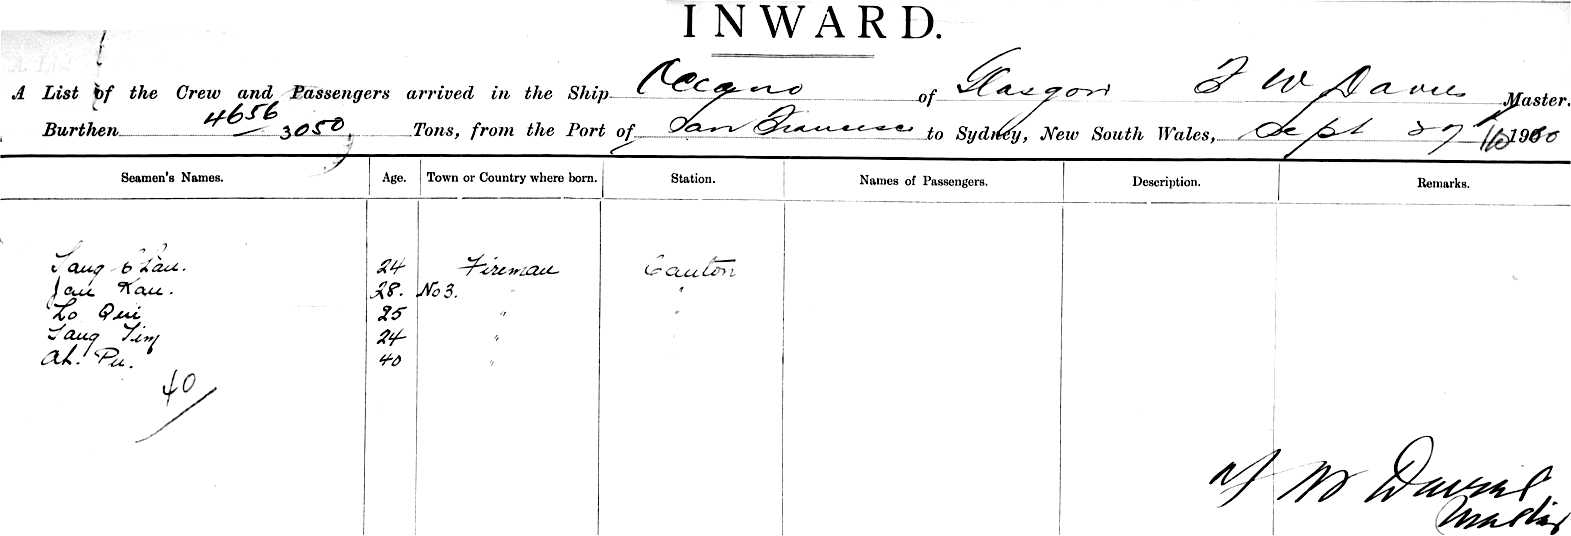 INWARD.
A List of the Crew and Passengers arrived in the Ship Oceano of Glasgow F W Davies Master.
Burthen 4656 3050, Tons, from the Port of San Francisco to Sydney, New South Wales, Sept 27 1900
Seamen's Names. Age. Town or Country where born. Station. Names of Passengers. Description. Remarks.
Sang Chan. 24 Fireman Canton
Jan Kau. 28. No 3. " "
Lo Qui 25 " "
Sang Tim 24 "
Ah. Pu. 40 "
40
F W Davies
Master